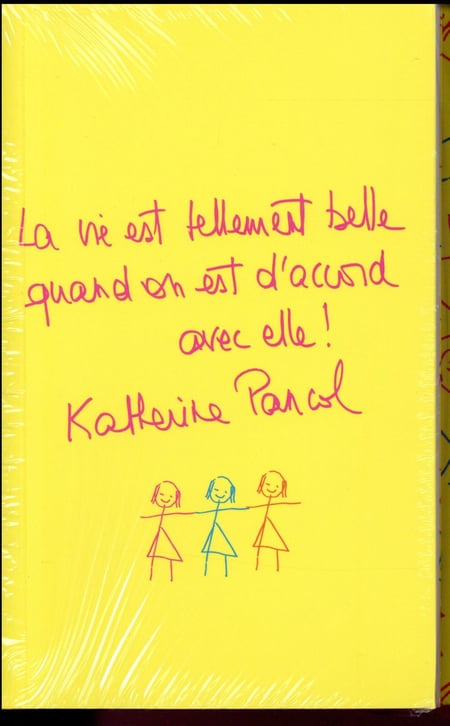 La vie est tellement belle
quand on est d'accord
avec elle !
Katherine Pancol